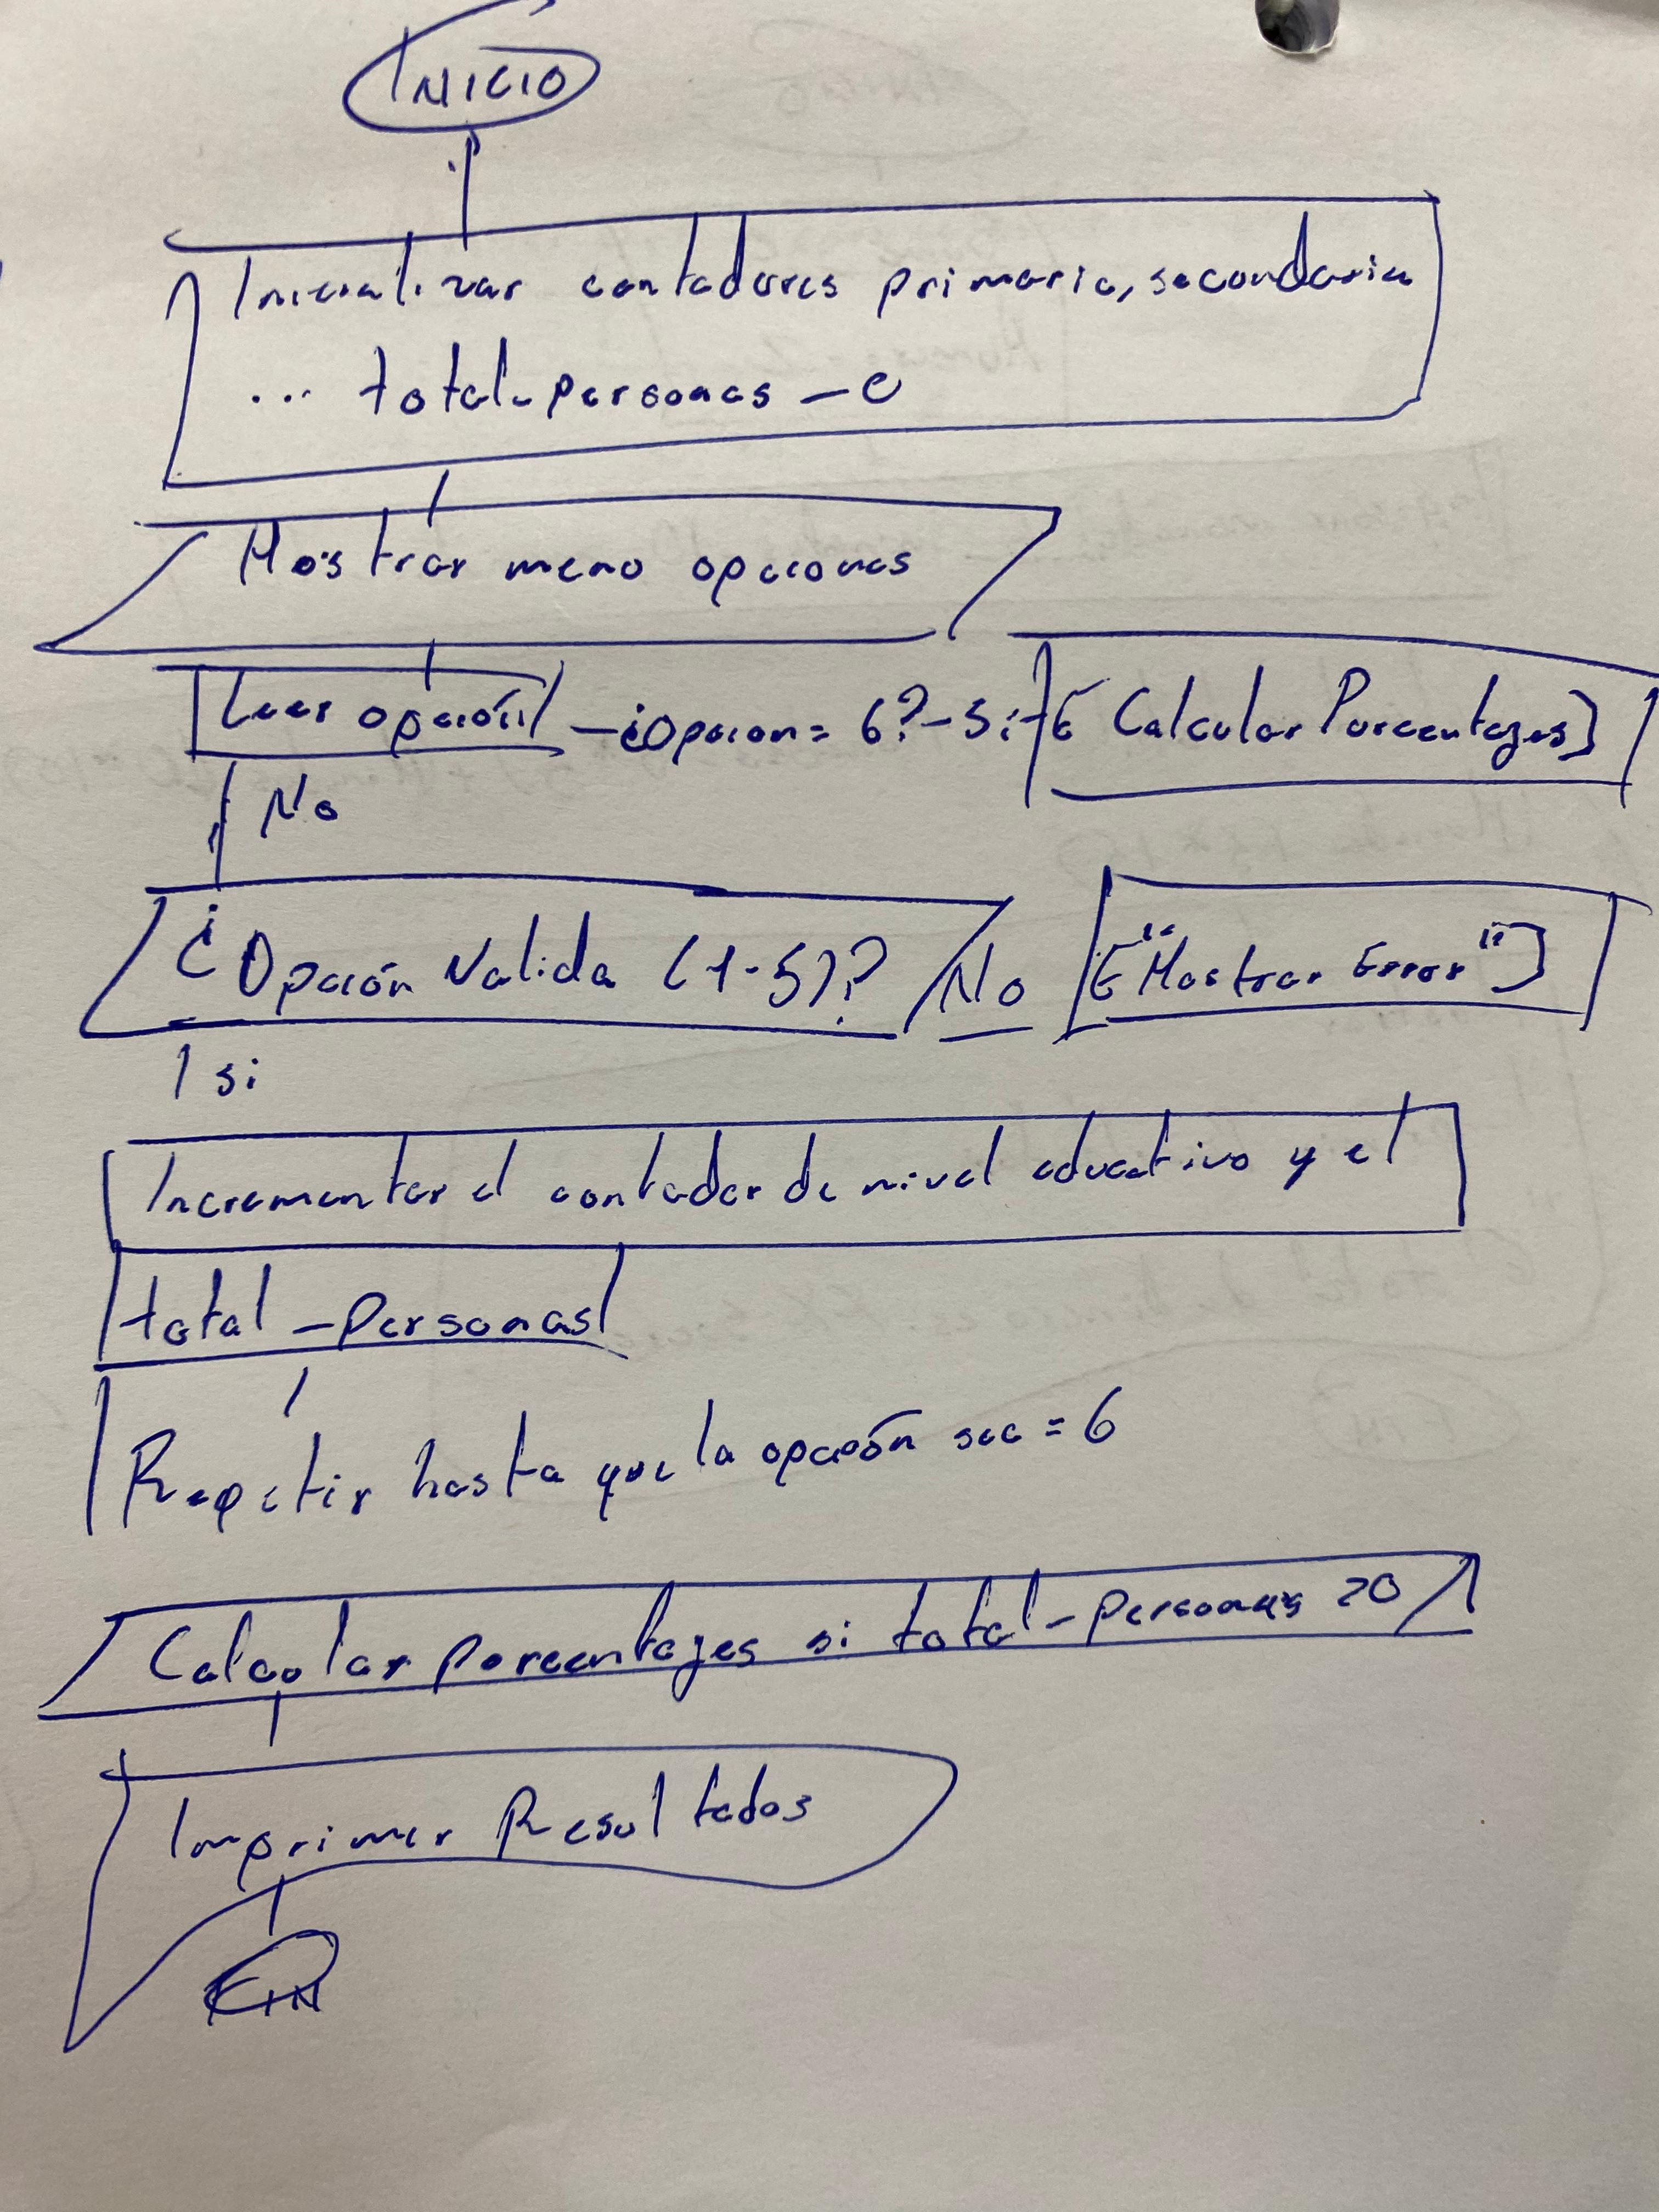 INICIO
Inicializar contadores primaria, secundaria
... total-personas - 0
Mostrar menu opciones
Leer opción - ¿Opcion = 6? - Si - [ Calcular Porcentajes]
No
¿Opción Valida (1-5)? No ["Mostrar Error"]
si
Incrementar el contador de nivel educativo y el
total - Personas
Repetir hasta que la opción sea = 6
Calcular porcentajes si total-personas >0
Imprimir Resultados
FIN